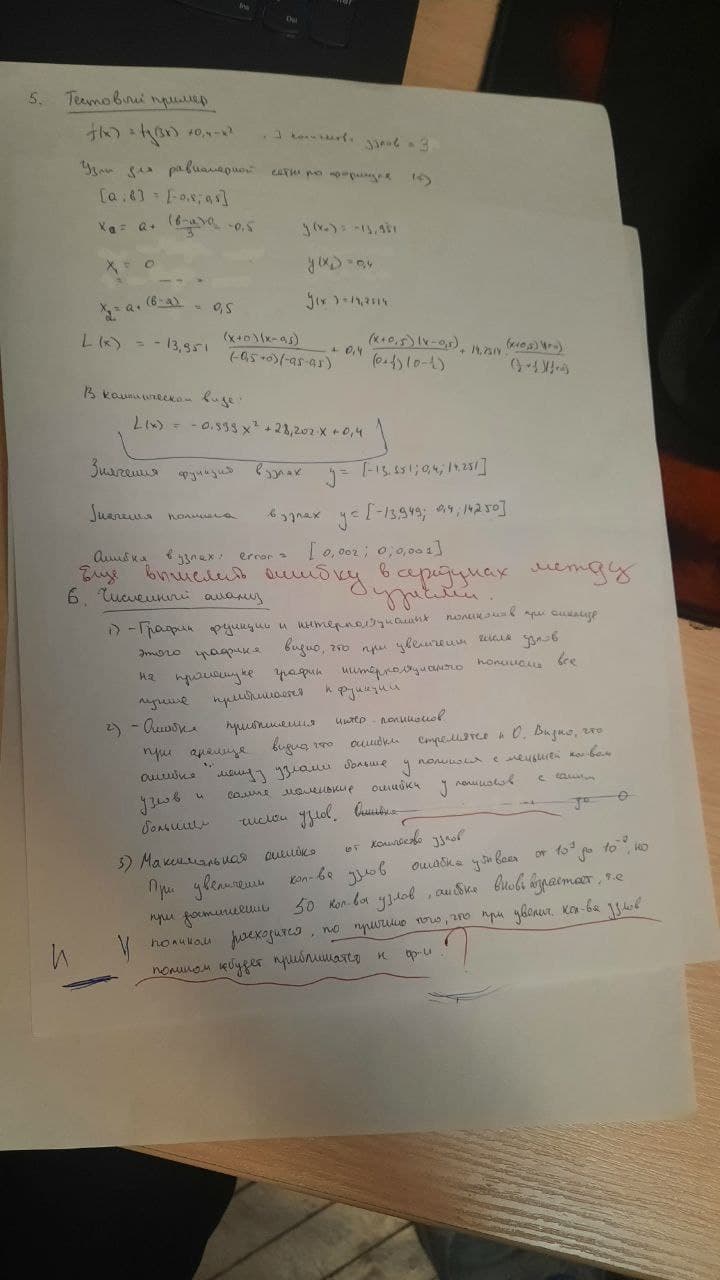 5. Тестовый пример
f(x) = tg(3x) + 0,4 - x² , количество узлов = 3
Узлы для равномерной сетки по формуле
[a; в] = [-0,5; 0,5]
y(x₀) = -13,951
x₁ = 0 y(x₁) = 0,4
x₂ = a + (в-a) = 0,5 y(x) = 14,2514
L(x) = -13,951 (x+0)(x-0,5)/(-0,5+0)(-0,5-0,5) + 0,4 (x+0,5)(x-0,5)/(0+½)(0-½) + 14,2514
В каноническом виде:
L(x) = -0.999x² + 28,202·x + 0,4
Значения функции в узлах y = [-13.951; 0,4; 14.251]
Значения полинома в узлах y = [-13,949; 0,4; 14,250]
Ошибка в узлах: error = [0,002; 0; 0,001]
Еще вычислить ошибку в серединах между
узлами.
6. Численный анализ
1) - График функции и интерполяционных полиномов при анализе
этого графика видно, что при увеличении числа узлов
на промежутке график интерполяционного полинома все
лучше приближается к функции
2) - Ошибка приближения интер. полиномов
при анализе видно, что ошибки стремятся к 0. Видно, что
ошибка "между узлами больше у полинома с меньшей кол-вом
узлов и самые маленькие ошибки у полиномов с самим
большим числом узлов. Ошибка до 0
3) Максимальная ошибка от количество узлов
При увеличении кол-ва узлов ошибка убывает от до но
при достижении 50 кол-ва узлов, ошибка вновь возрастает, т.е
полином расходится, по причине того, что при увелич. кол-ва узлов
полином будет приближатся к ф-и. ?